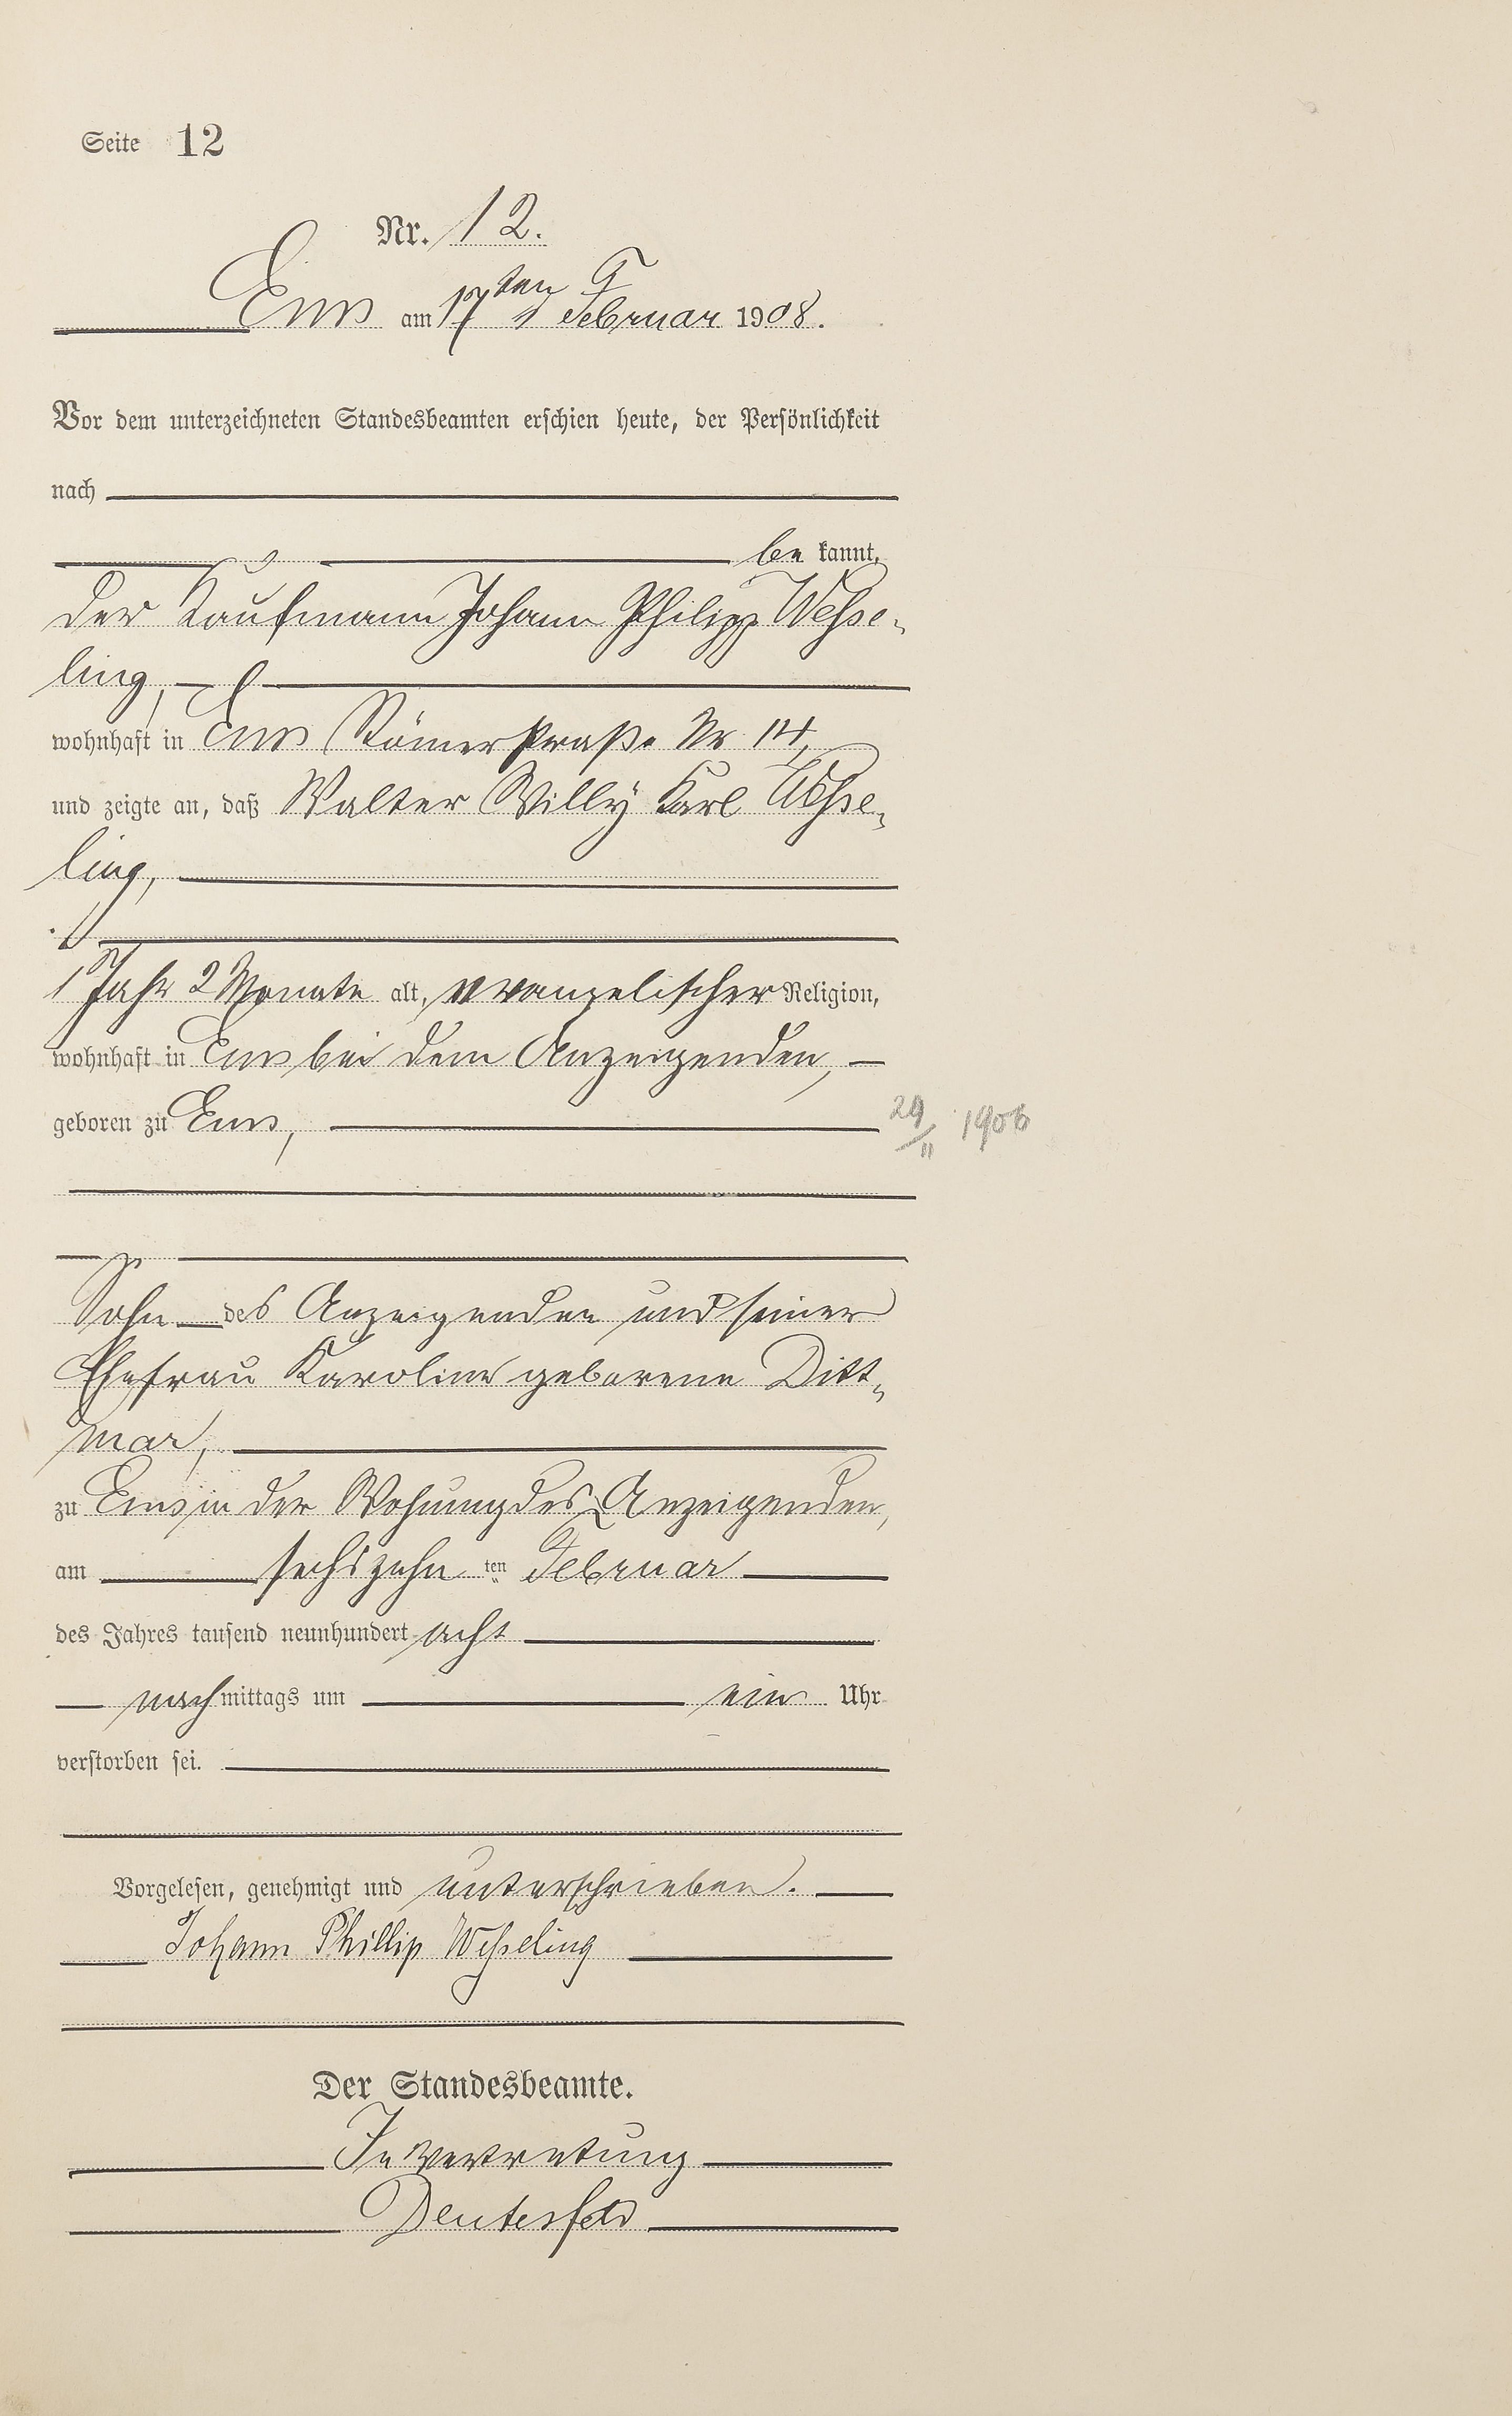 Seite 12
Nr. 12.
Ems am 17ten Februar 1908.
Vor dem unterzeichneten Standesbeamten erschien heute, der Persönlichkeit
nach
be kannt,
der Kaufmann Johann Philipp Weſse-
ling,
wohnhaft in Ems Römerstraße Nr 14,
und zeigte an, daß Walter Willy Karl Weſse-
ling,
1 Jahr 2 Monate alt, evangelischer Religion,
wohnhaft in Ems bei dem Anzeigenden,
geboren zu Ems,
29/11 1906
Sohn des Anzeigenden und seiner
Ehefrau Karoline geborene Ditt-
mar,
zu Ems in der Wohnung des Anzeigenden,
am sechszehn ten Februar
des Jahres tausend neunhundert acht
nachmittags um ein Uhr
verstorben sei.
Vorgelesen, genehmigt und unterschrieben.
Johann Phillip Weſseling
Der Standesbeamte.
In Vertretung